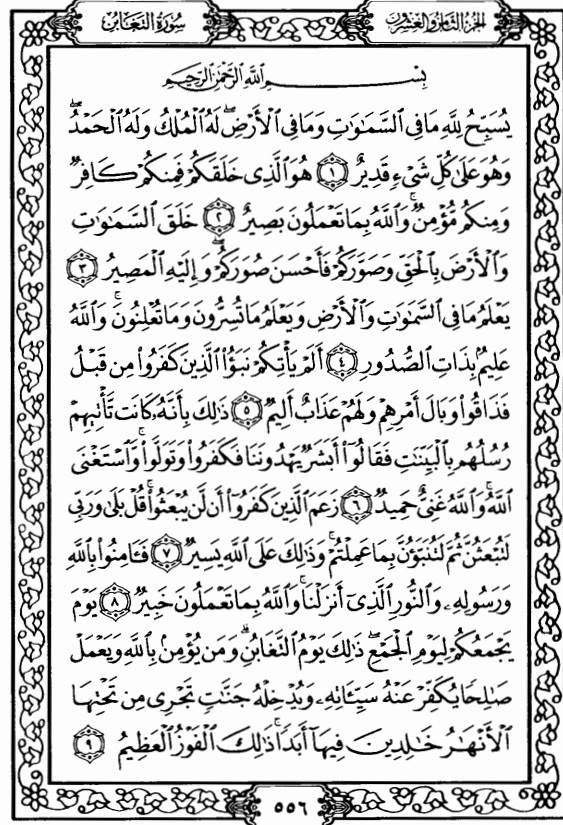 سُورَةُ التَّغَابُنِ
الجُزءُ الثَّامِنُ وَالعِشْرُونَ
بِسْمِ اللَّهِ الرَّحْمَٰنِ الرَّحِيمِ
يُسَبِّحُ لِلَّهِ مَا فِي السَّمَٰوَٰتِ وَمَا فِي الْأَرْضِ ۖ لَهُ الْمُلْكُ وَلَهُ الْحَمْدُ ۖ
وَهُوَ عَلَىٰ كُلِّ شَيْءٍ قَدِيرٌ ١ هُوَ الَّذِي خَلَقَكُمْ فَمِنكُمْ كَافِرٌ
وَمِنكُم مُّؤْمِنٌ ۚ وَاللَّهُ بِمَا تَعْمَلُونَ بَصِيرٌ ٢ خَلَقَ السَّمَٰوَٰتِ
وَالْأَرْضَ بِالْحَقِّ وَصَوَّرَكُمْ فَأَحْسَنَ صُوَرَكُمْ ۖ وَإِلَيْهِ الْمَصِيرُ ٣
يَعْلَمُ مَا فِي السَّمَٰوَٰتِ وَالْأَرْضِ وَيَعْلَمُ مَا تُسِرُّونَ وَمَا تُعْلِنُونَ ۚ وَاللَّهُ
عَلِيمٌ بِذَاتِ الصُّدُورِ ٤ أَلَمْ يَأْتِكُمْ نَبَؤُا الَّذِينَ كَفَرُوا مِن قَبْلُ
فَذَاقُوا وَبَالَ أَمْرِهِمْ وَلَهُمْ عَذَابٌ أَلِيمٌ ٥ ذَٰلِكَ بِأَنَّهُ كَانَت تَّأْتِيهِمْ
رُسُلُهُم بِالْبَيِّنَٰتِ فَقَالُوا أَبَشَرٌ يَهْدُونَنَا فَكَفَرُوا وَتَوَلَّوا ۚ وَّاسْتَغْنَى
اللَّهُ ۚ وَاللَّهُ غَنِيٌّ حَمِيدٌ ٦ زَعَمَ الَّذِينَ كَفَرُوا أَن لَّن يُبْعَثُوا ۚ قُلْ بَلَىٰ وَرَبِّي
لَتُبْعَثُنَّ ثُمَّ لَتُنَبَّؤُنَّ بِمَا عَمِلْتُمْ ۚ وَذَٰلِكَ عَلَى اللَّهِ يَسِيرٌ ٧ فَـَٔامِنُوا بِاللَّهِ
وَرَسُولِهِ وَالنُّورِ الَّذِي أَنزَلْنَا ۚ وَاللَّهُ بِمَا تَعْمَلُونَ خَبِيرٌ ٨ يَوْمَ
يَجْمَعُكُمْ لِيَوْمِ الْجَمْعِ ۖ ذَٰلِكَ يَوْمُ التَّغَابُنِ ۗ وَمَن يُؤْمِن بِاللَّهِ وَيَعْمَلْ
صَٰلِحًا يُكَفِّرْ عَنْهُ سَيِّـَٔاتِهِ وَيُدْخِلْهُ جَنَّٰتٍ تَجْرِي مِن تَحْتِهَا
الْأَنْهَٰرُ خَٰلِدِينَ فِيهَا أَبَدًا ۚ ذَٰلِكَ الْفَوْزُ الْعَظِيمُ ٩
٥٥٦